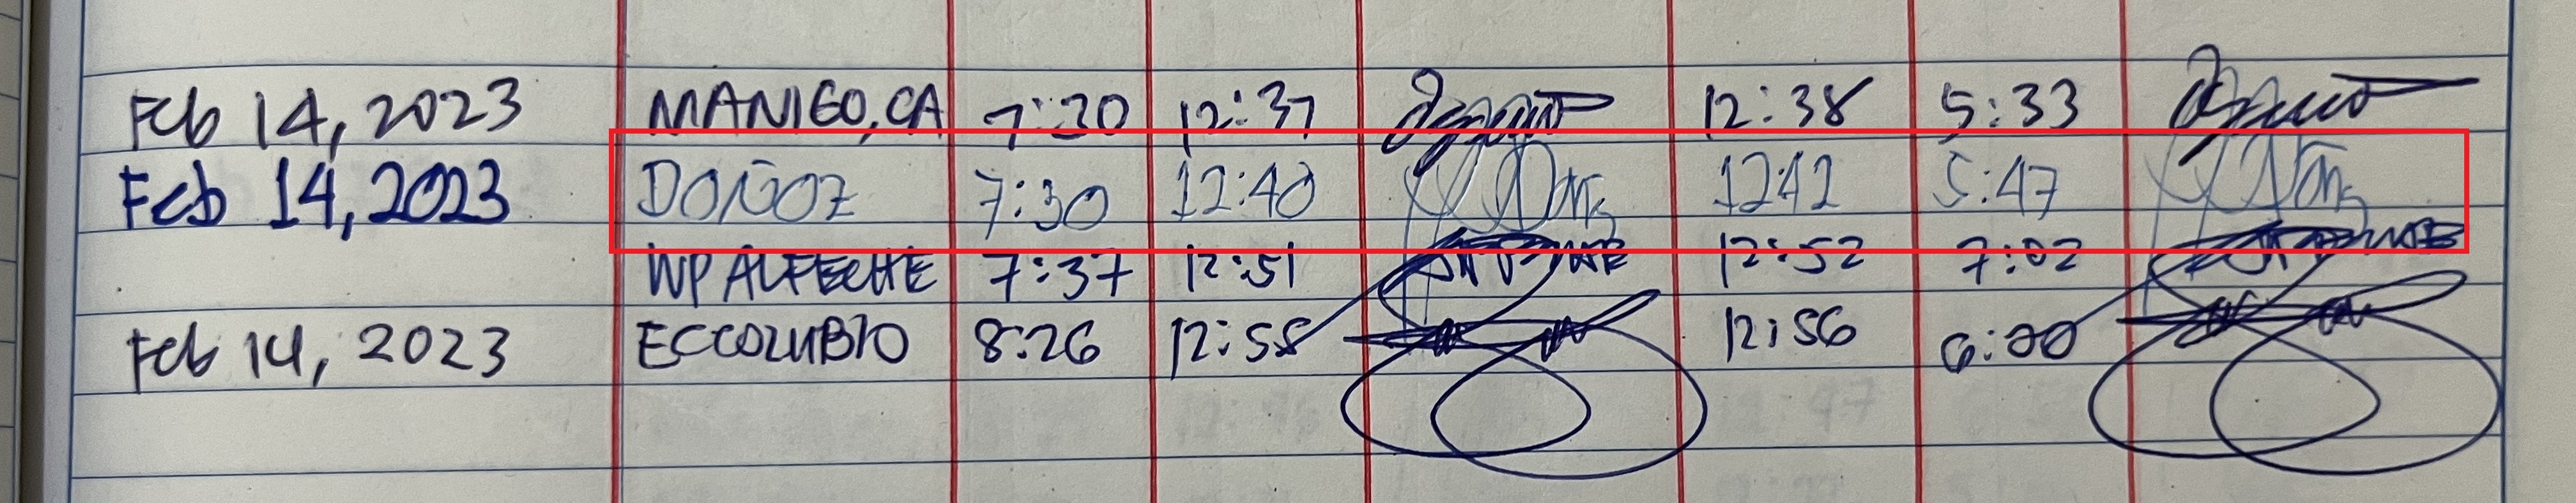 Feb 14, 2023 MANIGO, CA 7:20 12:37 12:38 5:33
Feb 14, 2023 DOÑOZ 7:30 12:40 1242 5:47
WP ALFECHE 7:37 12:51 12:52 7:02
Feb 14, 2023 ECCOLUBIO 8:26 12:55 12:56 6:00